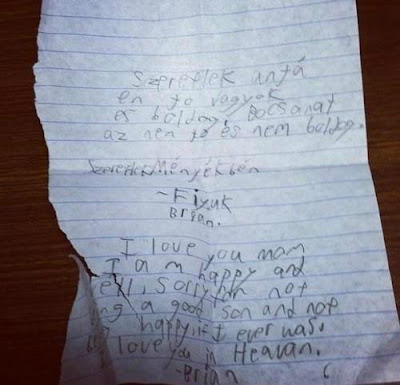 Szeretlek anyá
en jo vagyok
es boldog, Bocsanat
az nem jo es nem boldog.
Szeretlek Menyékbén
~Fiyuk
Brian.
I love you mom
I am happy and
ell, Sorry for not
ng a good son and not
happy, if I ever was.
love you in Heavan.
-Brian